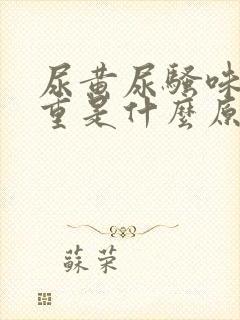 尿黃尿騷味
重是什麼原
蘇荣